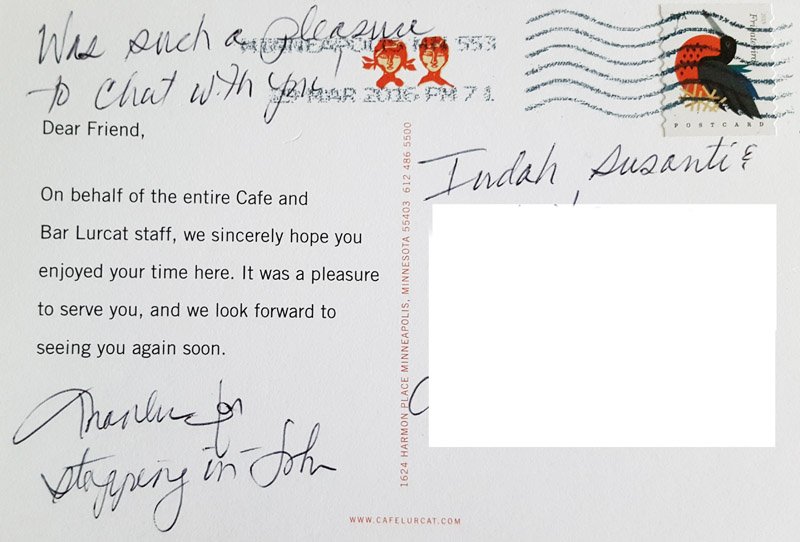 Was such a pleasure
to chat with you!
MINNEAPOLIS MN 553
29 MAR 2016 PM 7 L
Frigatebird
POSTCARD
Dear Friend,
On behalf of the entire Cafe and
Bar Lurcat staff, we sincerely hope you
enjoyed your time here. It was a pleasure
to serve you, and we look forward to
seeing you again soon.
Thanks for
stopping in - John
1624 HARMON PLACE MINNEAPOLIS, MINNESOTA 55403 612 486 5500
Indah Susanti &
WWW.CAFELURCAT.COM